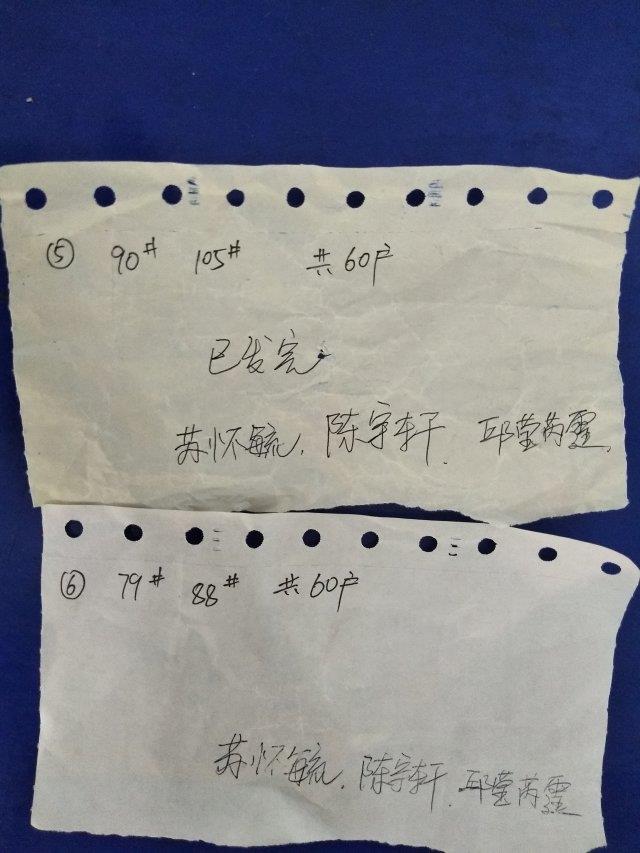 ⑤ 90# 105# 共60户
已发完
苏怀毓, 陈宇轩. 邱莹芮霆.
⑥ 79# 88# 共60户
苏怀毓. 陈宇轩. 邱莹芮霆